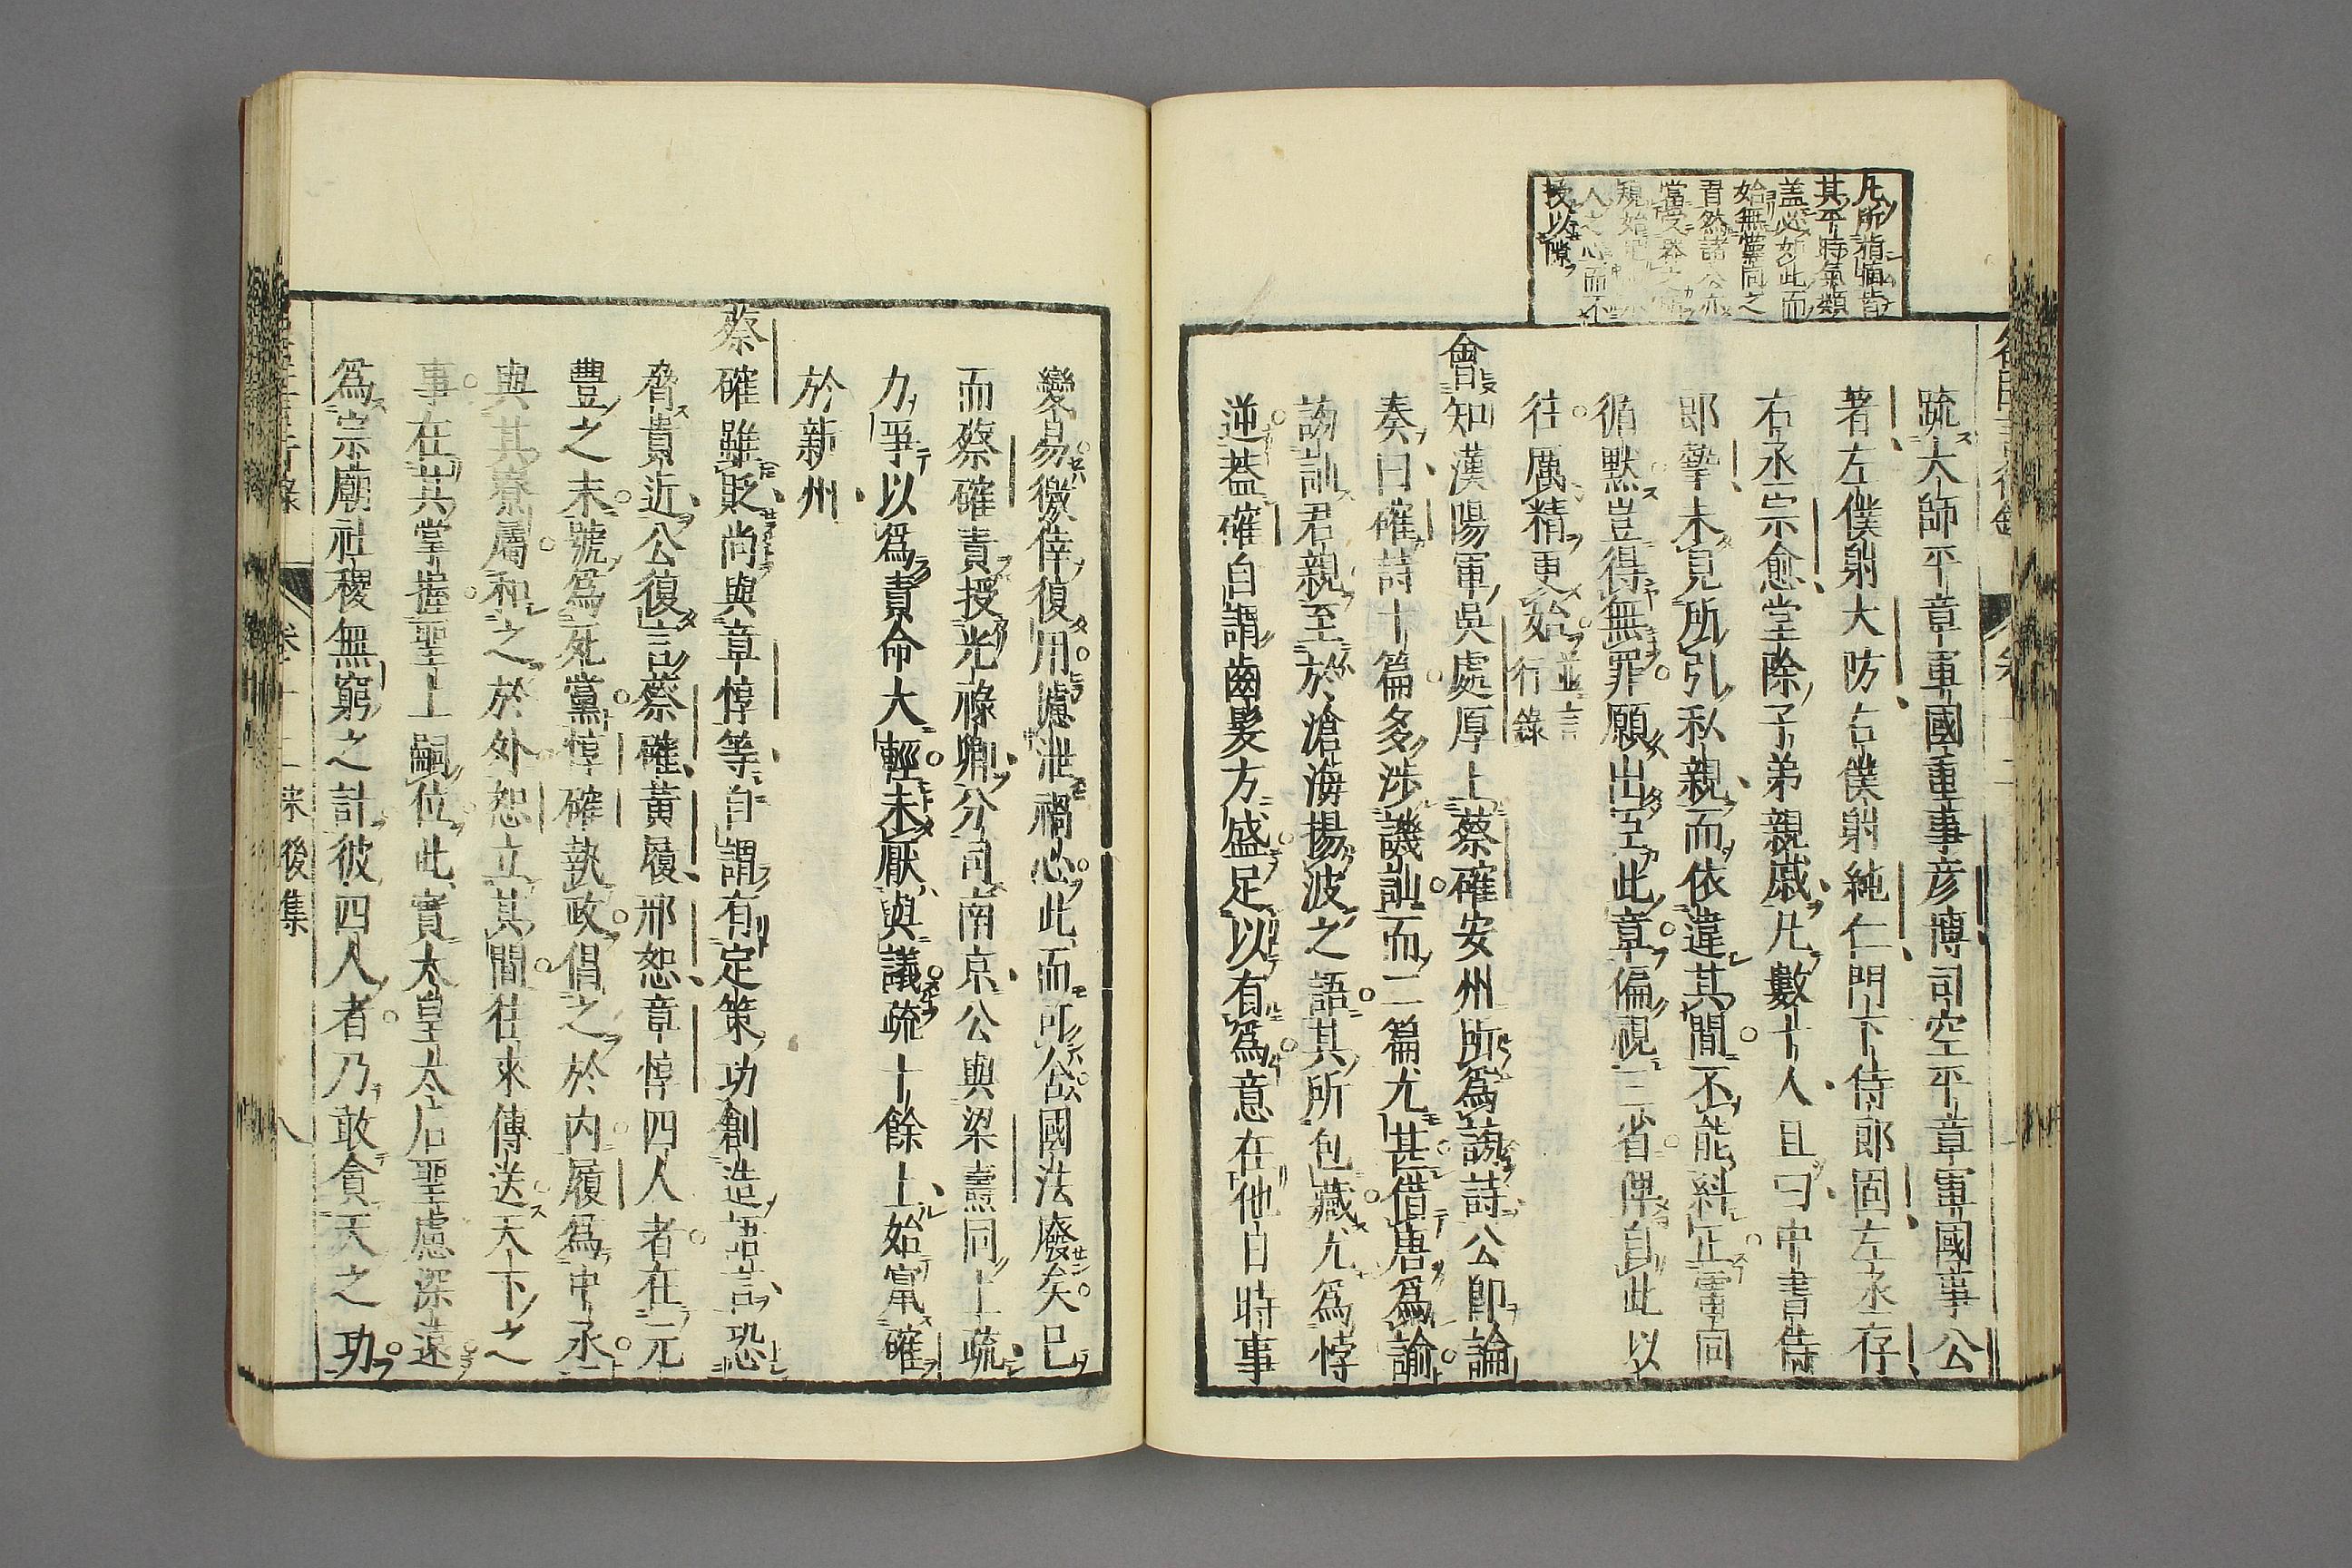 凡所指悔皆
其平時氣類
盖必如此而
始無黨同之
君然諸公亦
當受
人之心而不
授以隙
疏太師平章軍國重事彦博司空平章軍國事公
著左僕射大防右僕射純仁門下侍郎固左丞存
右丞宗愈堂除子弟親戚凡數十人且曰中書侍
郎摯未見所引私親而依違其間不能糾正雷同
循默豈得無罪願出臣此章偏視三省俾自此以
往厲精更始並言行錄
會知漢陽軍吳處厚上蔡確安州所為謗詩公卽論
奏曰確詩十篇多涉譏訕而二篇尤甚借唐爲諭
謗訕君親至於滄海揚波之語其所包藏尤爲悖
逆葢確自謂齒髮方盛足以有爲意在他日時事
變易徼倖復用攄泄禍心此而可舍國法廢矣已
而蔡確責授光祿卿分司南京公與梁燾同上疏
力爭以爲責命大輕未厭與議疏十餘上始竄確
於新州
蔡確雖貶尚與章惇等自謂有定策功創造語言恐
脅貴近公復言蔡確黃履邢恕章惇四人者在元
豐之末號爲死黨惇確執政倡之於内履爲中丞
與其寮屬和之於外恕立其間往來傳送天下之
事在其掌握聖上嗣位此實太皇太后聖慮深遠
爲宗廟社稷無窮之計彼四人者乃敢貪天之功
卷十二 宋後集 八